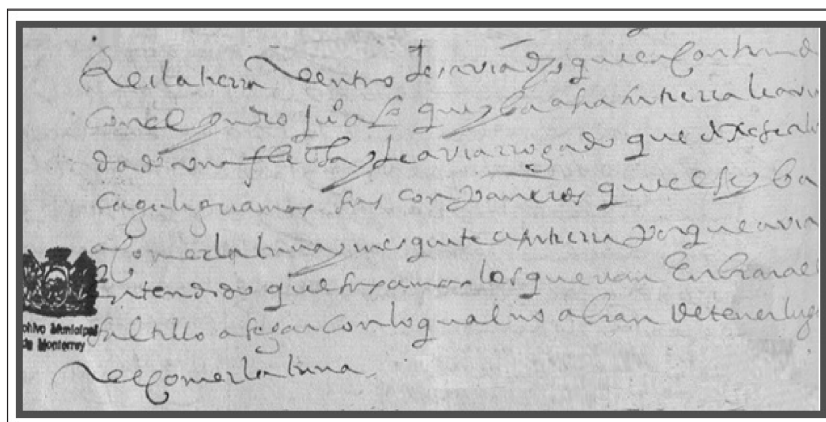 de la tierra dentro desviados quien
con el yndio Juº a lo que yba a su tierra le avi
dado una flecha y le avia rrogado que dixese a lo
sus compañeros que el se yba
a comer la tuna y mesquite a su tierra porque avia
entendido que sus amos los que van En biar al
Saltillo a segar con lo qual no abian de tener lug
de comer la tuna
chivo Municipal
de Monterrey